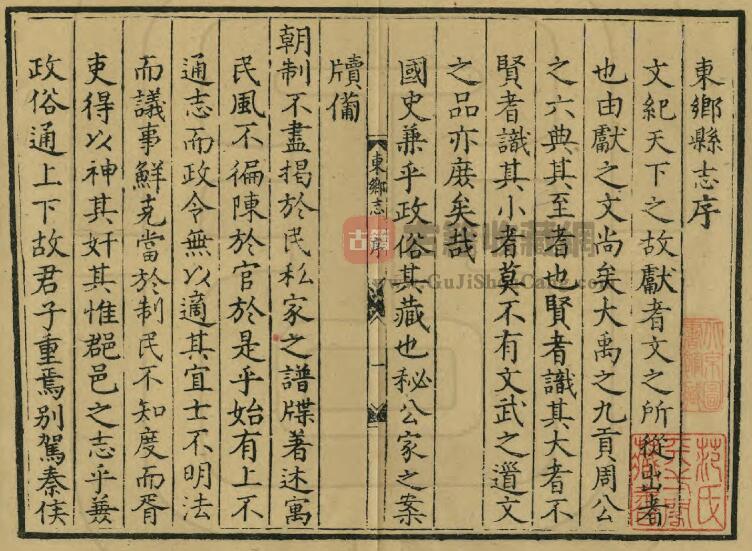 東鄉縣志序
文紀天下之故獻者文之所從出者
也由獻之文尚矣大禹之九貢周公
之六典其至者也賢者識其大者不
賢者識其小者莫不有文武之道文
之品亦庶矣哉
國史兼乎政俗其藏也秘公家之案
牘備
東鄉志
序
一
朝制不盡揭於民私家之譜牒著述寓
民風不徧陳於官於是乎始有上不
通志而政令無以適其宜士不明法
而議事鮮克當於制民不知度而胥
吏得以神其奸其惟郡邑之志乎兼
政俗通上下故君子重焉别駕秦侯
古籍
古籍收藏網
www.GuJiShouCang.com
范氏